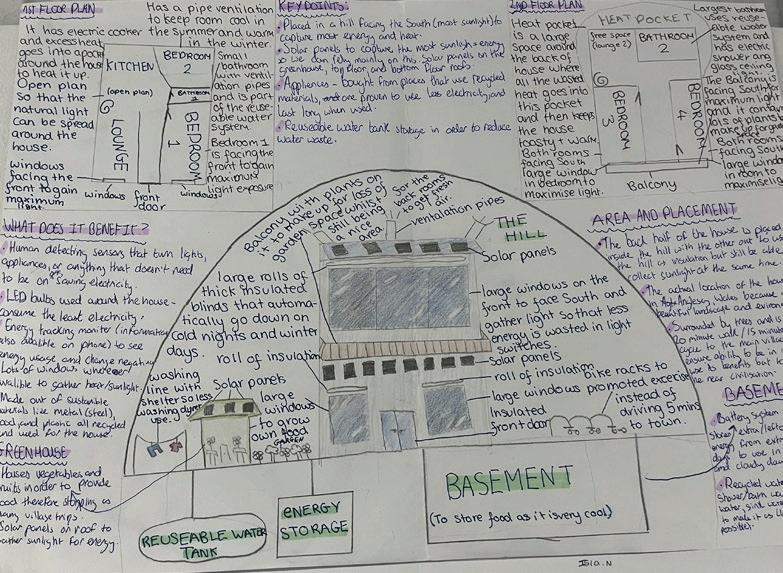 1ST FLOOR PLAN
It has electric cooker
and excess heat
goes into a
around the house
to heat it up.
Open plan
so that the
natural light
can be spread
around the
house.
windows
facing the
front to gain
maximum
light
Has a pipe ventilation
to keep room cool in
the summer and warm
in the winter.
KITCHEN
(open plan)
LOUNGE
BEDROOM
2
BATHROOM
BEDROOM 1
windows
front
door
windows
Small
bathroom
with ventil-
ation pipes
and is part
of the reus-
able water
system.
Bedroom 1
is facing the
front to gain
maximum
light exposure
KEY POINTS:
Placed in a hill facing the South (most sunlight) to
capture most energy and heat.
Solar panels to capture the most sunlight + energy
so we can rely mainly on this. Solar panels on the
greenhouse, top floor, and bottom floor roofs
Appliances - bought from places that use recycled
materials, are proven to use less electricity, and
last long when used.
Reuseable water tank storage in order to reduce
water waste.
2ND FLOOR PLAN
Heat pocket
is a large
space around
the back of
house where
all the wasted
heat goes into
this pocket
and then keeps
the house
toasty + warm
Both rooms
facing South
large window
in bedroom to
maximise light.
HEAT POCKET
free space
(lounge 2)
BATHROOM
2
BEDROOM 3
BEDROOM 4
Balcony
Largest
bathroom
uses reuse-
able water
system and
has electric
shower and
glass ceiling
The Balcony is
facing South for
maximum light
and it contains
loss of plants
make up for
Both rooms
facing South
large window
in room to
maximise
WHAT DOES IT BENEFIT?
Human detecting sensors that turn lights,
appliances, or anything that doesn't need
to be on saving electricity.
LED bulbs used around the house -
consume the least electricity.
Energy tracking monitor (information
also available on phone) to see
energy usage, and change
Lots of windows wherever
to gather heat/sunlight.
Made out of sustainable
materials like metal (steel),
wood, and plastic all recycled
and used for the house.
GREENHOUSE
Houses vegetables and
fruits in order to provide
food therefore stopping as
many village trips.
Solar panels on roof to
gather sunlight for energy.
Balcony with plants on
it to make up for loss of
garden space whilst
still being
a nice
area.
for the
back rooms
to get fresh
air.
ventalation pipes
THE
HILL
Solar panels
large rolls of
thick insulated
blinds that automa-
tically go down on
cold nights and winter
days.
roll of insulation
large windows on the
front to face South and
gather light so that less
energy is wasted in light
switches.
solar panels
roll of insulation
large windows
Insulated
front door
bike racks to
promoted excerise
instead of
driving 5mins
to town.
washing
line with
shelter so less
washing dryer
use.
Solar panels
large
windows
to grow
own food
GARDEN
REUSEABLE WATER
TANK
ENERGY
STORAGE
BASEMENT
(To store food as it is very cool)
AREA AND PLACEMENT
The back half of the house is placed
inside the hill with the other out to use
the hill as insulation but still be able
collect sunlight at the same time.
The actual location of the house
in Anglesey, Wales because
beautiful landscape and
Surrounded by trees and is
20 minute walk / 15 minute
cycle to the main village
ensure ability to be
to benefits but it
near civilisation
BASEMENT
Battery system
stores extra/left
energy from
days to use in
and cloudy days
Recycled water
shower/bath
water, sink
to make it us
possible).
Isla.N